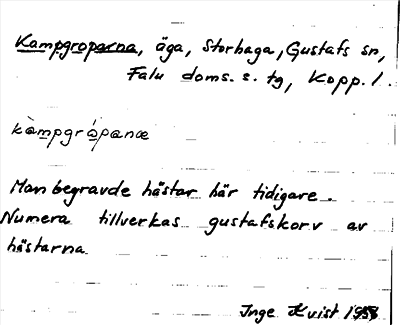 Kampgroparna, äga, Storhaga, Gustafs sn,
Falu doms. s. tg, Kopp. l.
kàmpgrópanæ
Man begravde hästar här tidigare.
Numera tillverkas gustafskorv av
hästarna
Inge Kvist